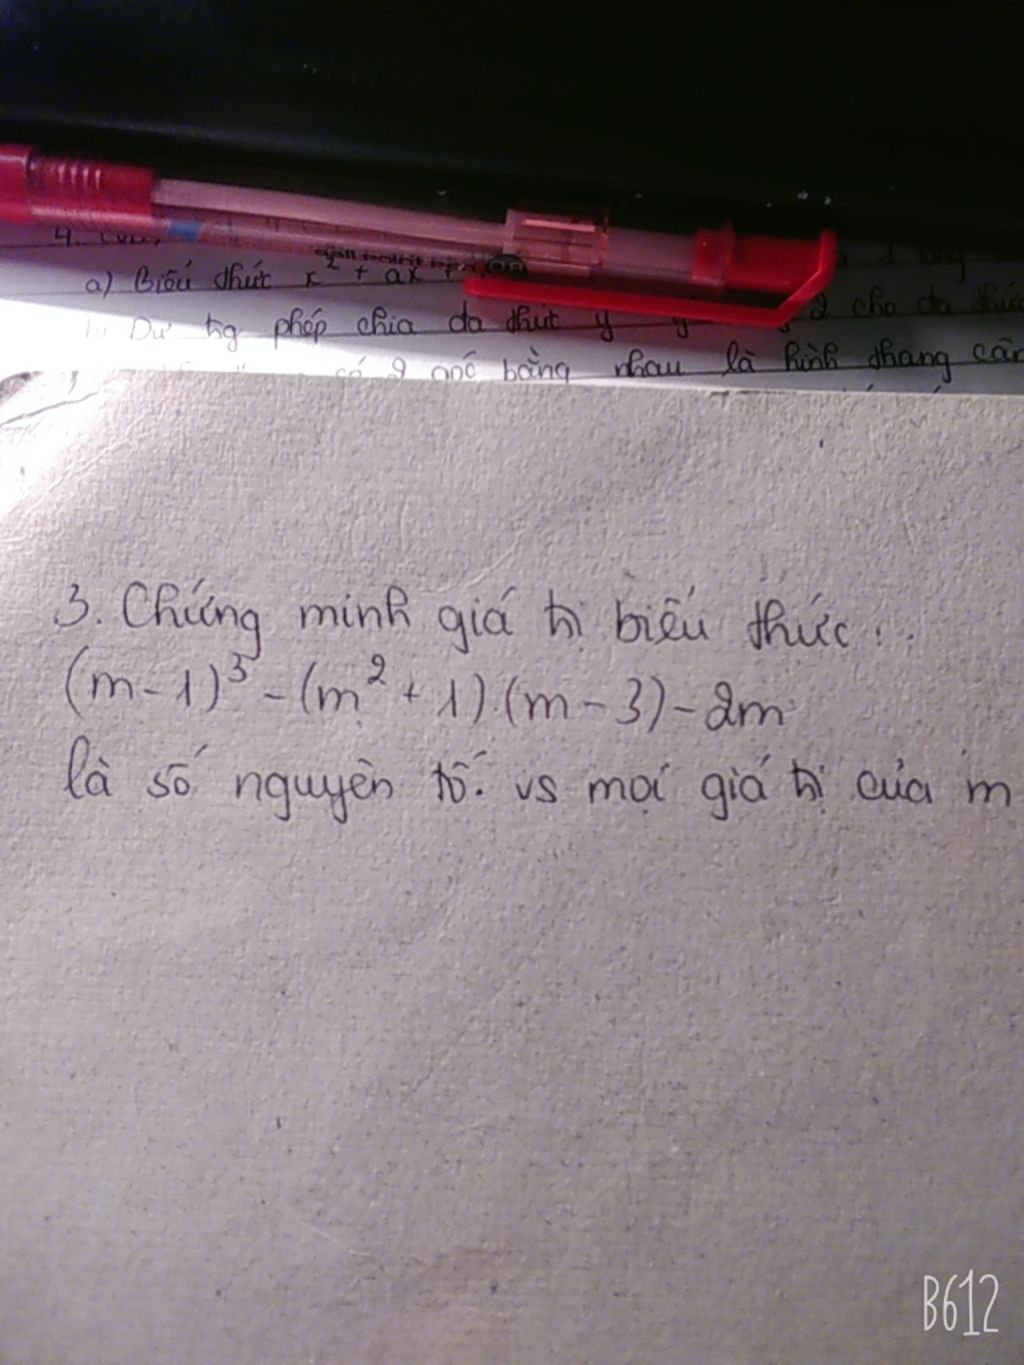 4.
a) Biểu thức x² + ax
phép chia đa thức y 2 cho đa thức
có 2 góc bằng nhau là hình thang cân
3. Chứng minh giá trị biểu thức:
(m-1)³-(m²+1).(m-3)-2m
là số nguyên tố. vs mọi giá trị của m
B612